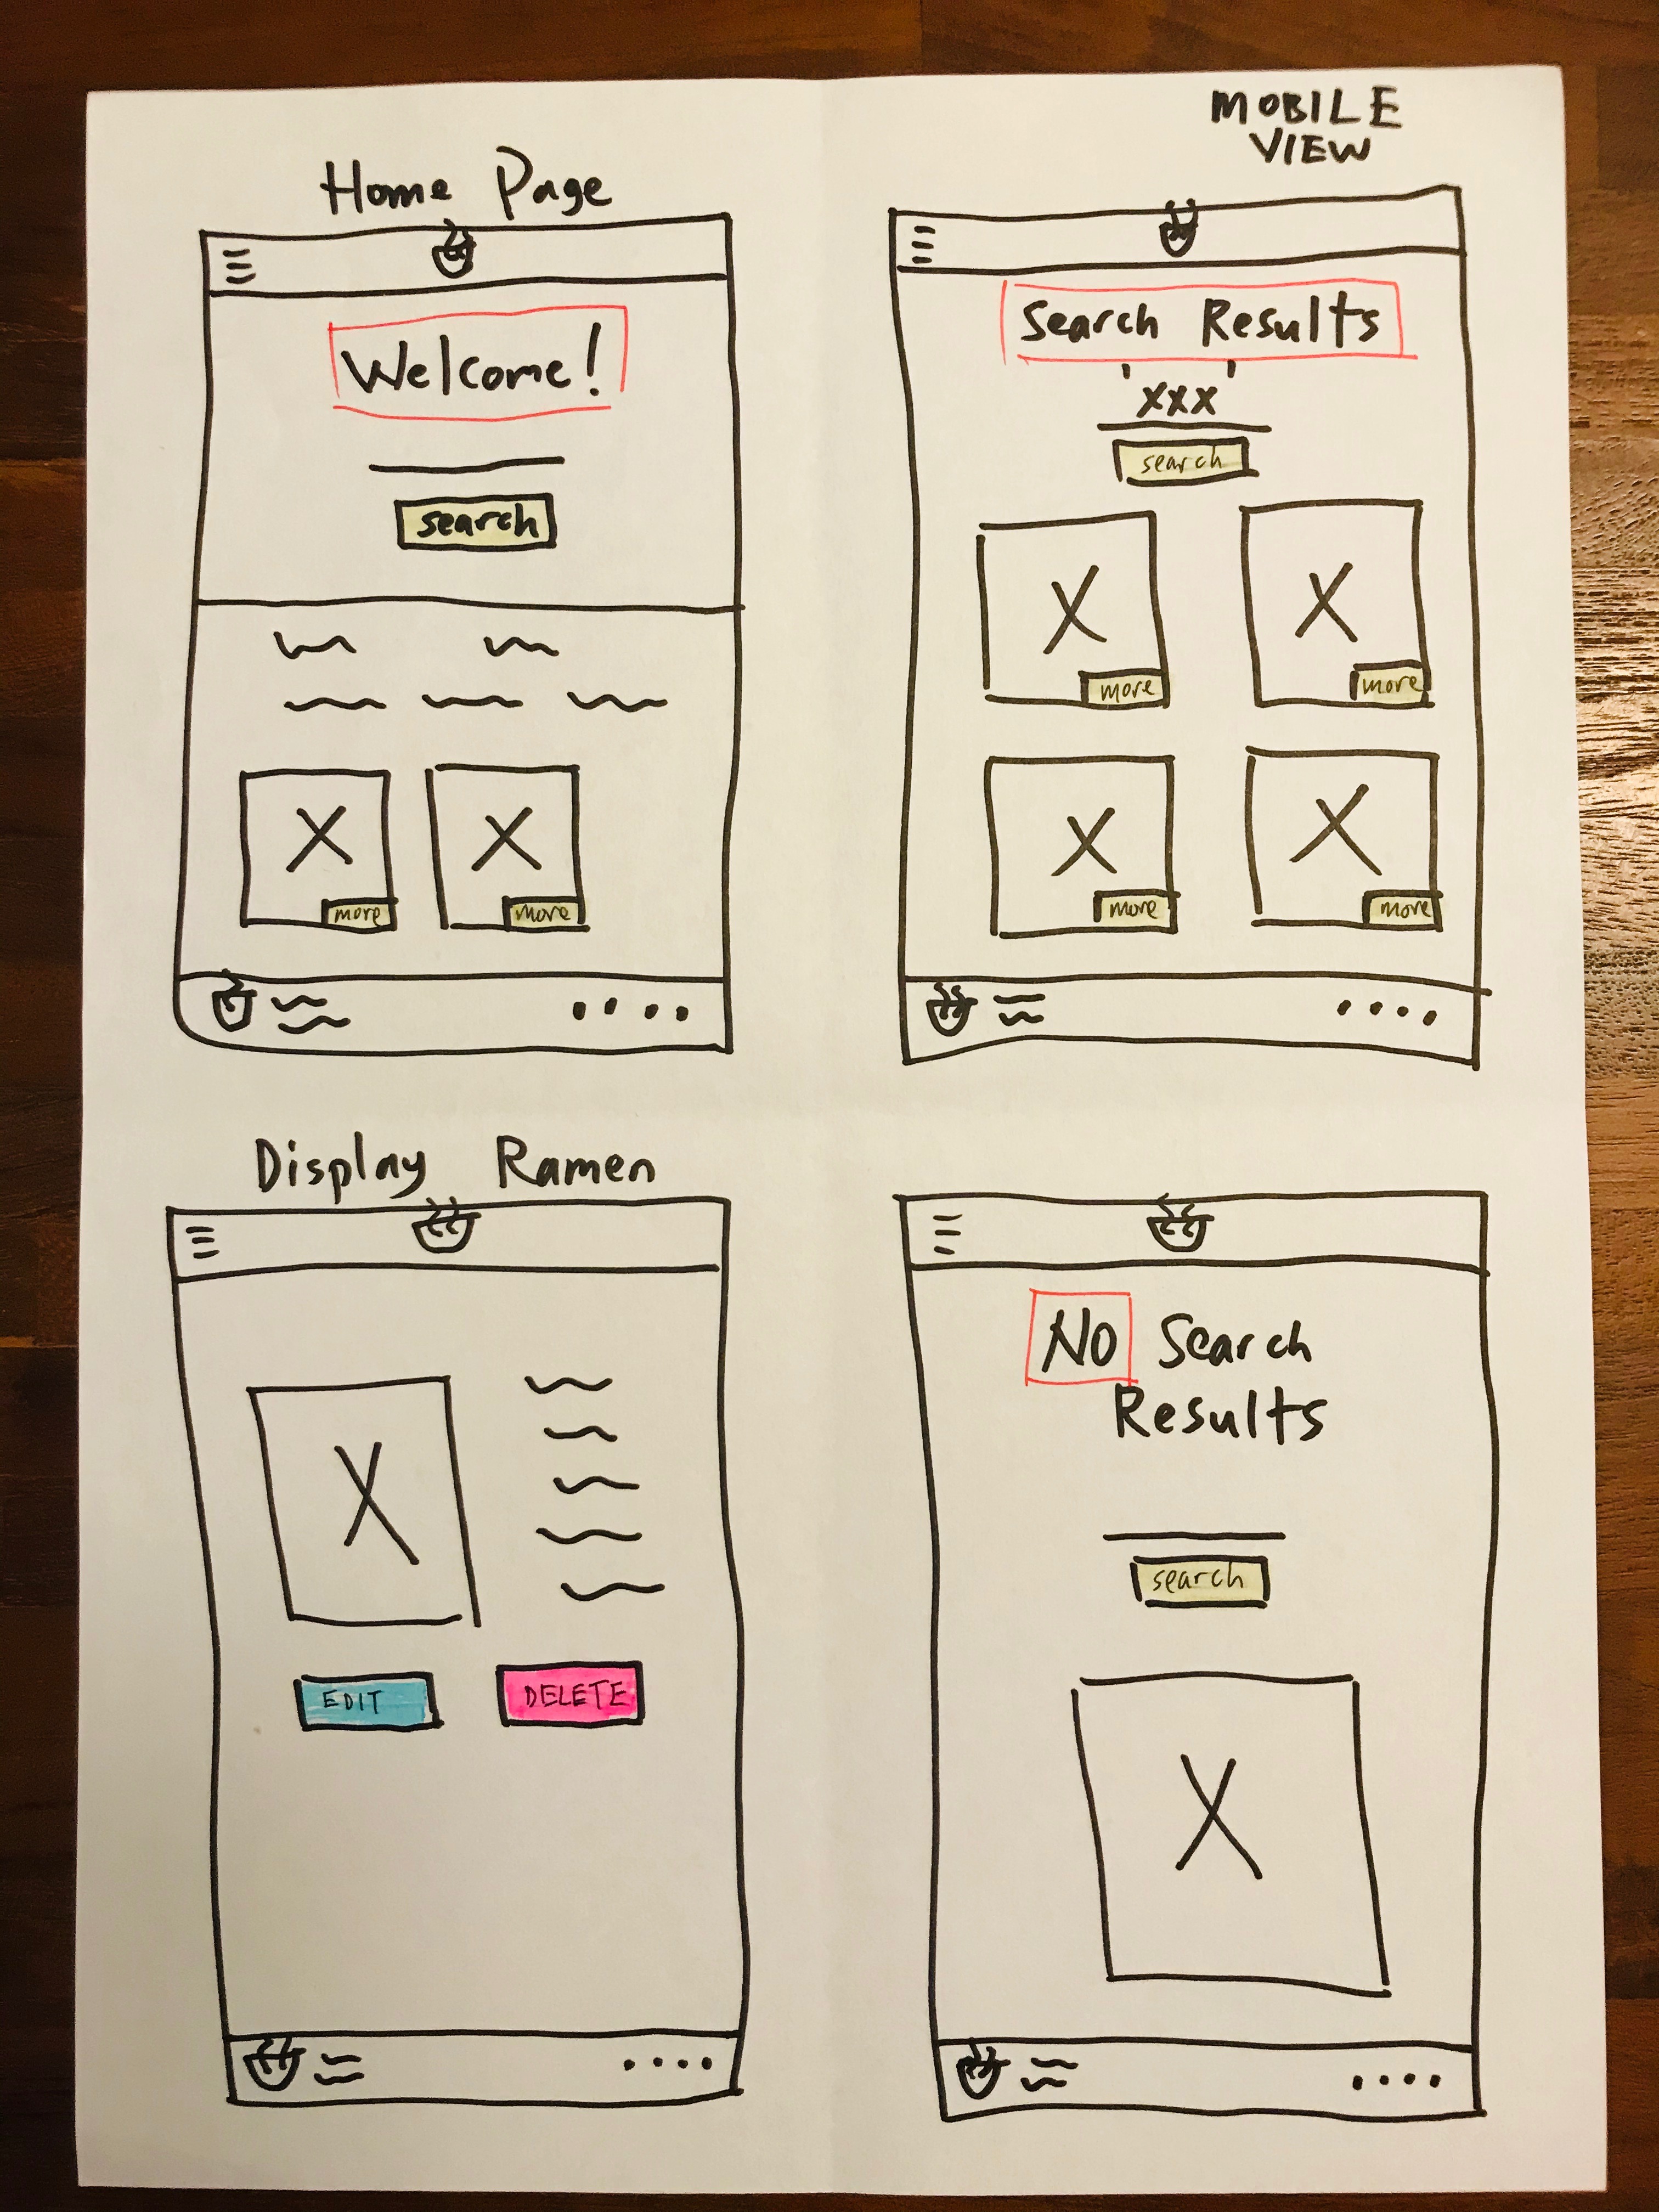 MOBILE
VIEW
Home Page
Welcome!
search
more
more
Search Results
'xxx'
search
X
X
more
more
X
X
more
more
Display Ramen
X
EDIT
DELETE
No Search
Results
search
X